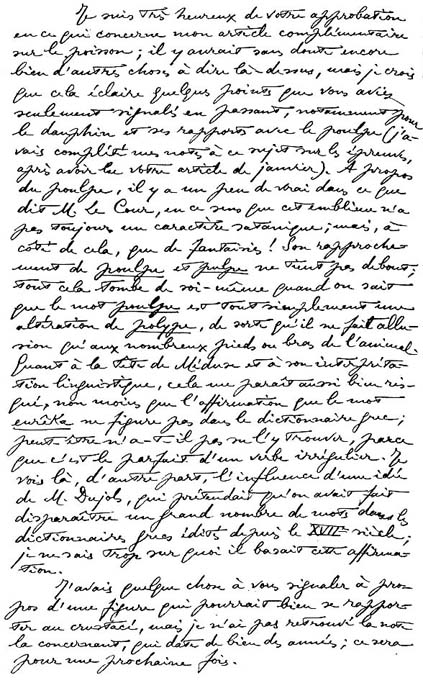 Je suis très heureux de votre approbation
en ce qui concerne mon article complémentaire
sur le poisson ; il y aurait sans doute encore
bien d'autres choses à dire là-dessus, mais je crois
que cela éclaire quelques points que vous aviez
seulement signalés en passant, notamment pour
le dauphin et ses rapports avec le poulpe (j'a-
vais complété mes notes à ce sujet sur les épreuves,
après avoir lu votre article de janvier). A propos
du poulpe, il y a un peu de vrai dans ce que
dit M. Le Cour, en ce sens que cet emblème n'a
pas toujours un caractère satanique ; mais, à
côté de cela, que de fantaisies ! Son rapproche-
ment de poulpe et pulpe ne tient pas debout ;
tout cela tombe de soi-même quand on sait
que le mot poulpe est tout simplement une
altération de polype, de sorte qu'il ne fait allu-
sion qu'aux nombreux pieds ou bras de l'animal.
Quant à la tête de Méduse et à son interpréta-
tion linguistique, cela me paraît aussi bien ris-
qué, non moins que l'affirmation que le mot
eurêka ne figure pas dans le dictionnaire grec ;
peut-être n'a-t-il pas su l'y trouver, parce
que c'est le parfait d'un verbe irrégulier. Je
vois là, d'autre part, l'influence d'une idée
de M. Dujols, qui prétendait qu'on avait fait
disparaître un grand nombre de mots dans les
dictionnaires grecs édités depuis le XVIIe siècle ;
je ne sais trop sur quoi il basait cette affirma-
tion.
J'avais quelque chose à vous signaler à pro-
pos d'une figure qui pourrait bien se rappor-
ter au crustacé, mais je n'ai pas retrouvé la note
la concernant, qui date de bien des années ; ce sera
pour une prochaine fois.